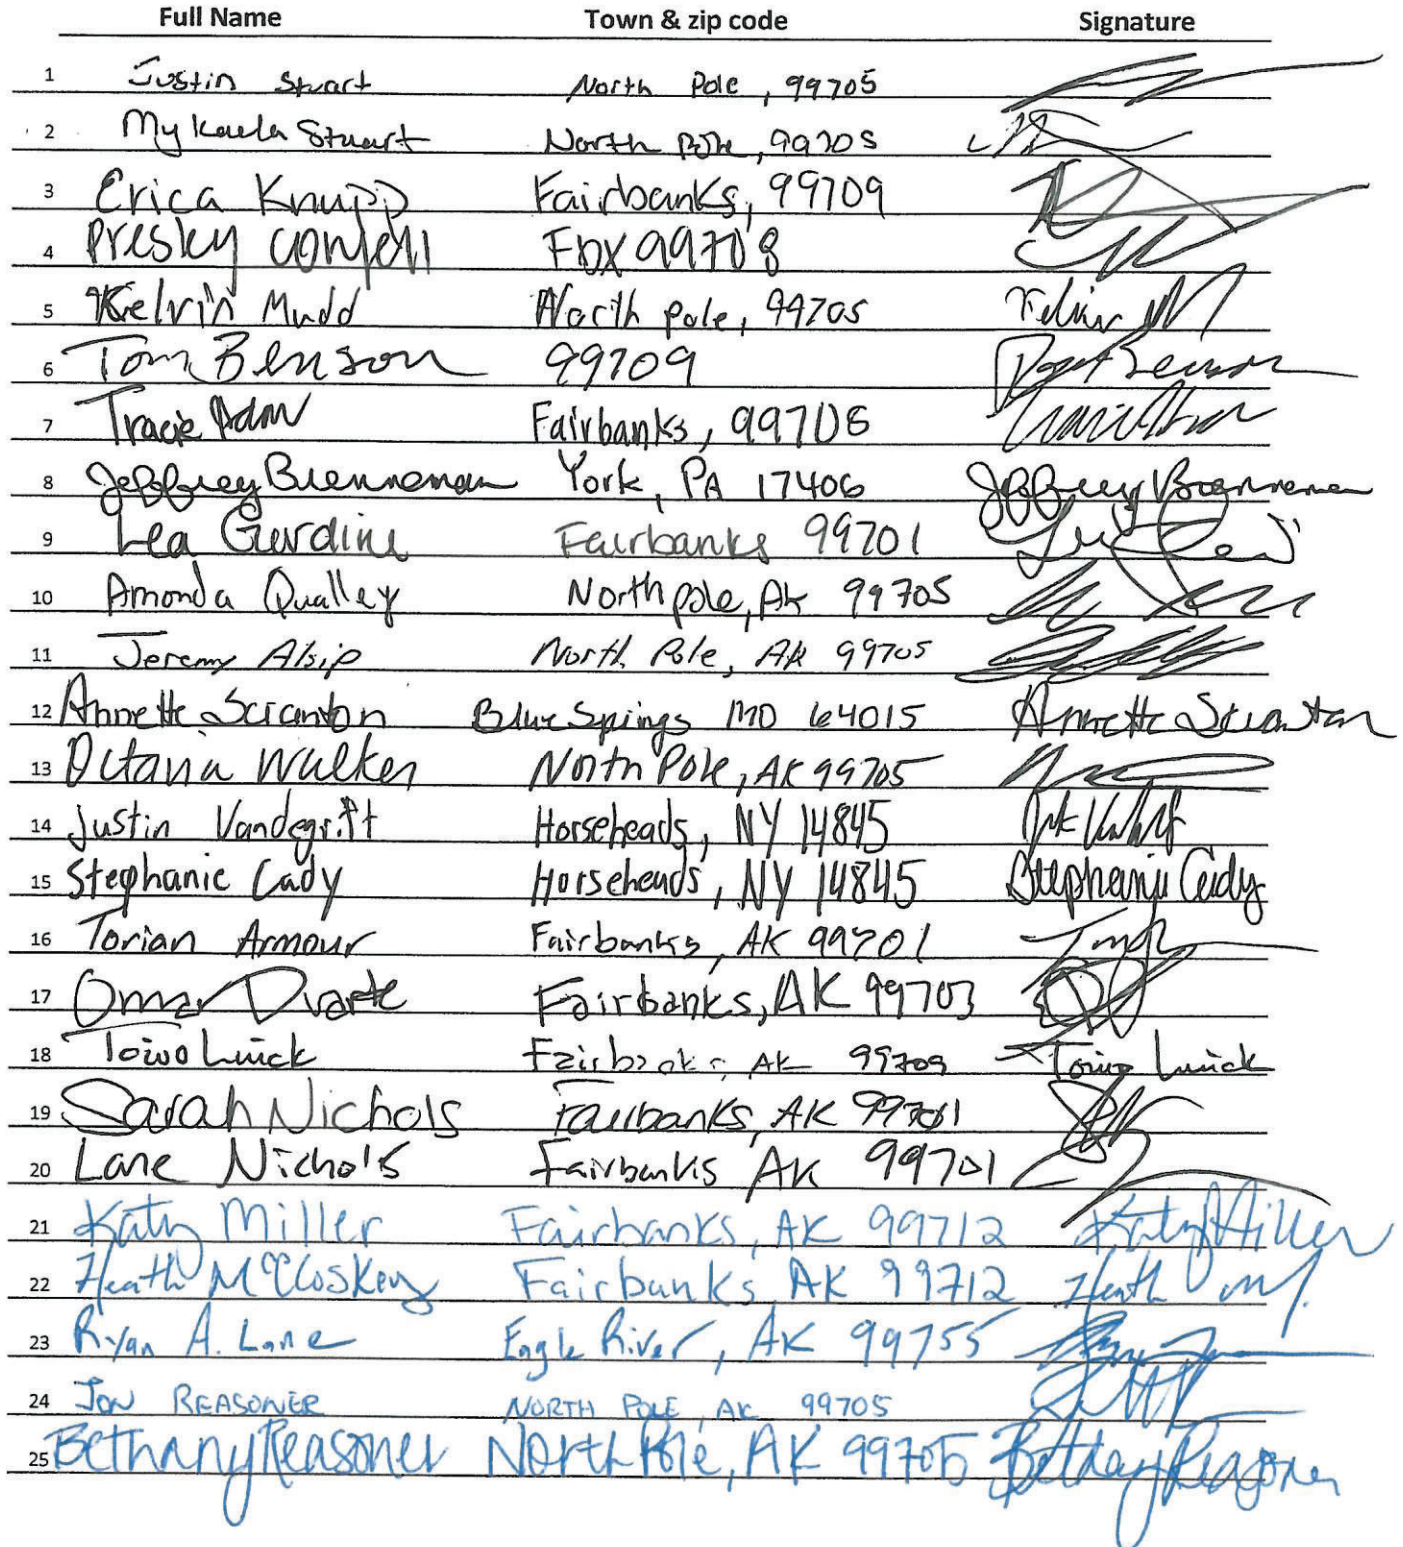 Full Name Town & zip code Signature
1 Justin Stuart North Pole, 99705
2 Mykaela Stuart North Pole, 99705
3 Erica Knupp Fairbanks, 99709
4 Presley Fbx 99708
5 Kelvin Mudd North pole, 99705 Kelvin M
6 Tom Benson 99709 Benson
7 Tracie Fairbanks, 99708
8 Jeffrey Brenneman York, PA 17406 Jeffrey Brenneman
9 Lea Fairbanks 99701
10 Amanda Qualley North pole, Ak 99705
11 Jeremy Alsip North Pole, AK 99705
12 Annette Scranton Blue Springs MO 64015 Annette Scranton
13 Octavia Walker North Pole, AK 99705
14 Justin Vandegrift Horseheads, NY 14845
15 Stephanie Cady Horseheads, NY 14845 Stephanie Cady
16 Torian Armour Fairbanks, AK 99701
17 Omar Duarte Fairbanks, AK 99703
18 Toivo Luick Fairbanks AK 99709 Toivo Luick
19 Sarah Nichols Fairbanks, AK 99701
20 Lane Nichols Fairbanks AK 99701
21 Katy Miller Fairbanks, AK 99712 Katy Miller
22 Heath McCloskey Fairbanks, AK 99712 Heath M
23 Ryan A. Lane Eagle River, AK 99755
24 JON REASONER NORTH POLE, AK 99705
25 Bethany Reasoner North Pole, AK 99705 Bethany Reasoner